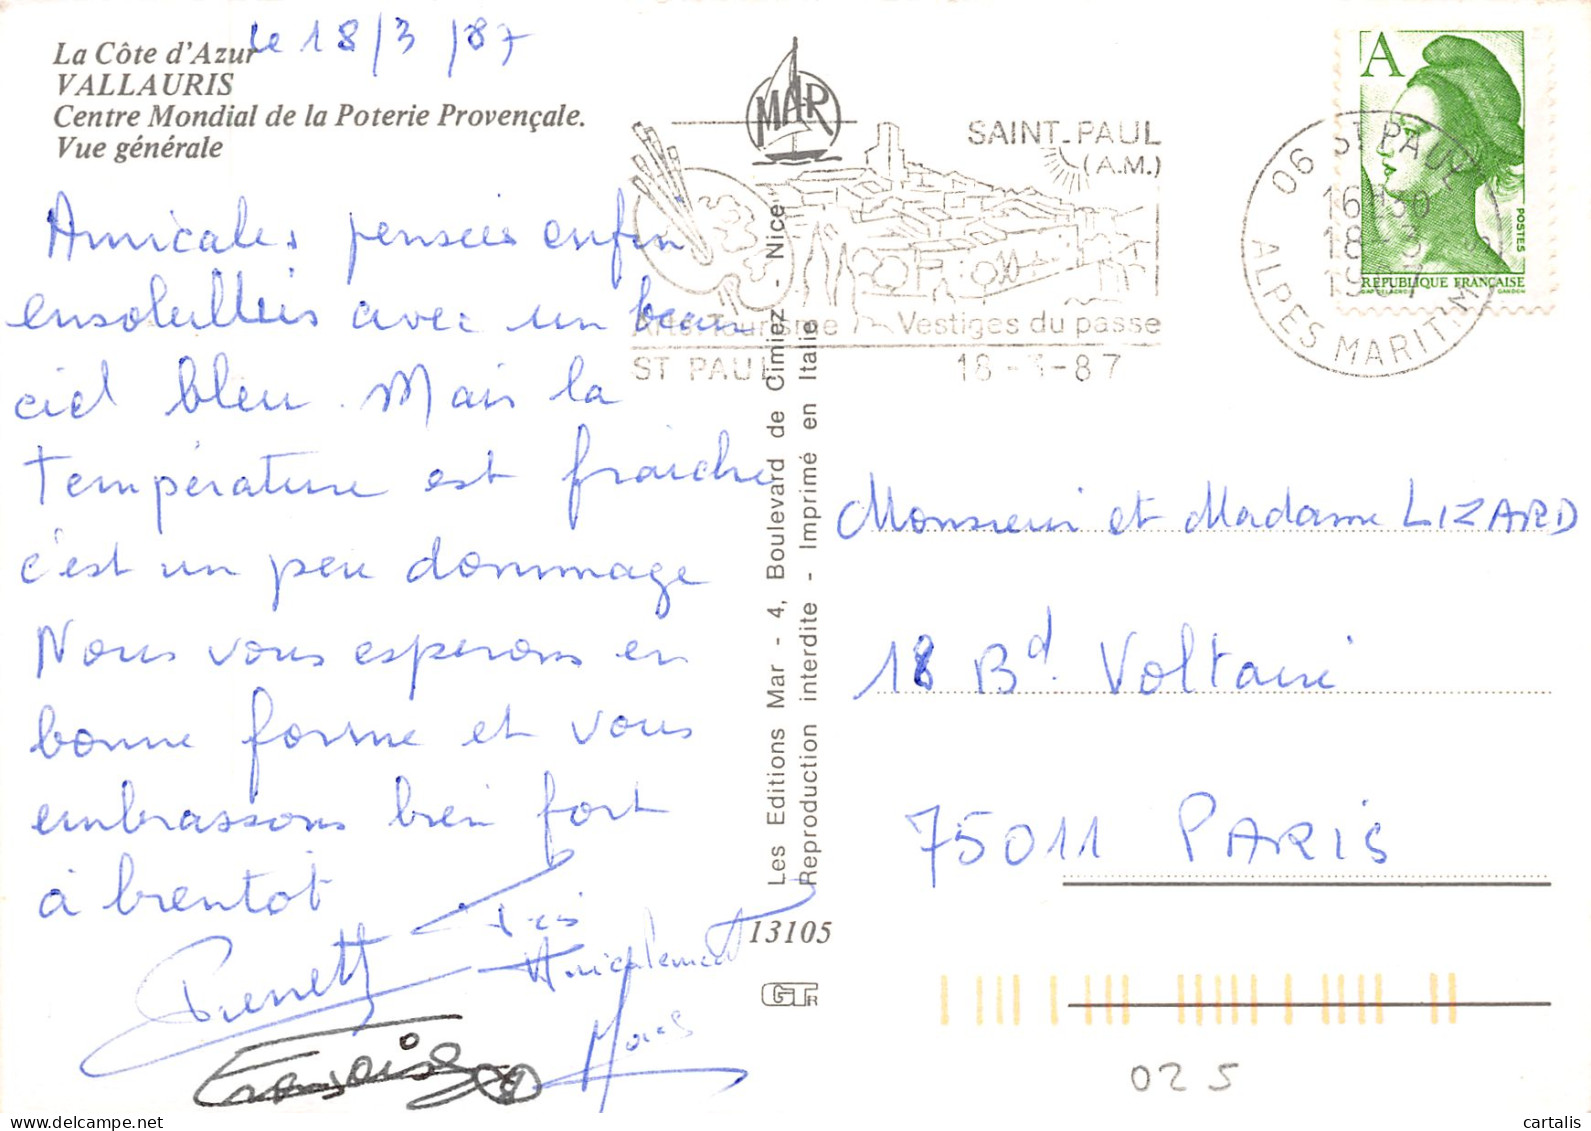 le 18/3/87
La Côte d'Azur
VALLAURIS
Centre Mondial de la Poterie Provençale.
Vue générale
Amicales pensées enfin
ensoleillées avec un beau
ciel bleu. Mais la
température est fraiche
c'est un peu dommage
Nous vous esperons en
bonne forme et vous
embrassons bien fort
à bientot
Pierrette
Très
Amicalement
Françoise
Les Editions Mar - 4, Boulevard de Cimiez - Nice
Reproduction interdite - Imprimé en Italie
13105
GTR
MAR
SAINT-PAUL
(A.M.)
Arts Tourisme Vestiges du passe
ST PAUL 18-3-87
06 ST PAUL
16H30
18-3
1987
ALPES MARITIMES
A
POSTES
RÉPUBLIQUE FRANÇAISE
GANDON
Monsieur et Madame LIZARD
18 Bd. Voltaire
75011 PARIS
025
cartalis